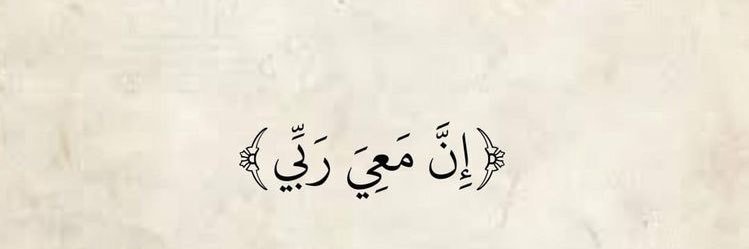 ﴿إِنَّ مَعِيَ رَبِّي﴾